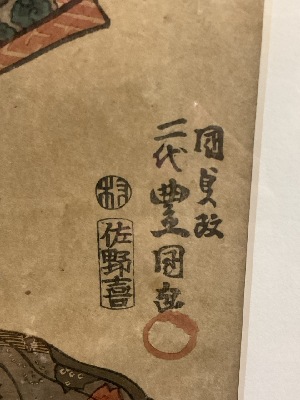 国貞改
二代豊国画
村
佐野喜